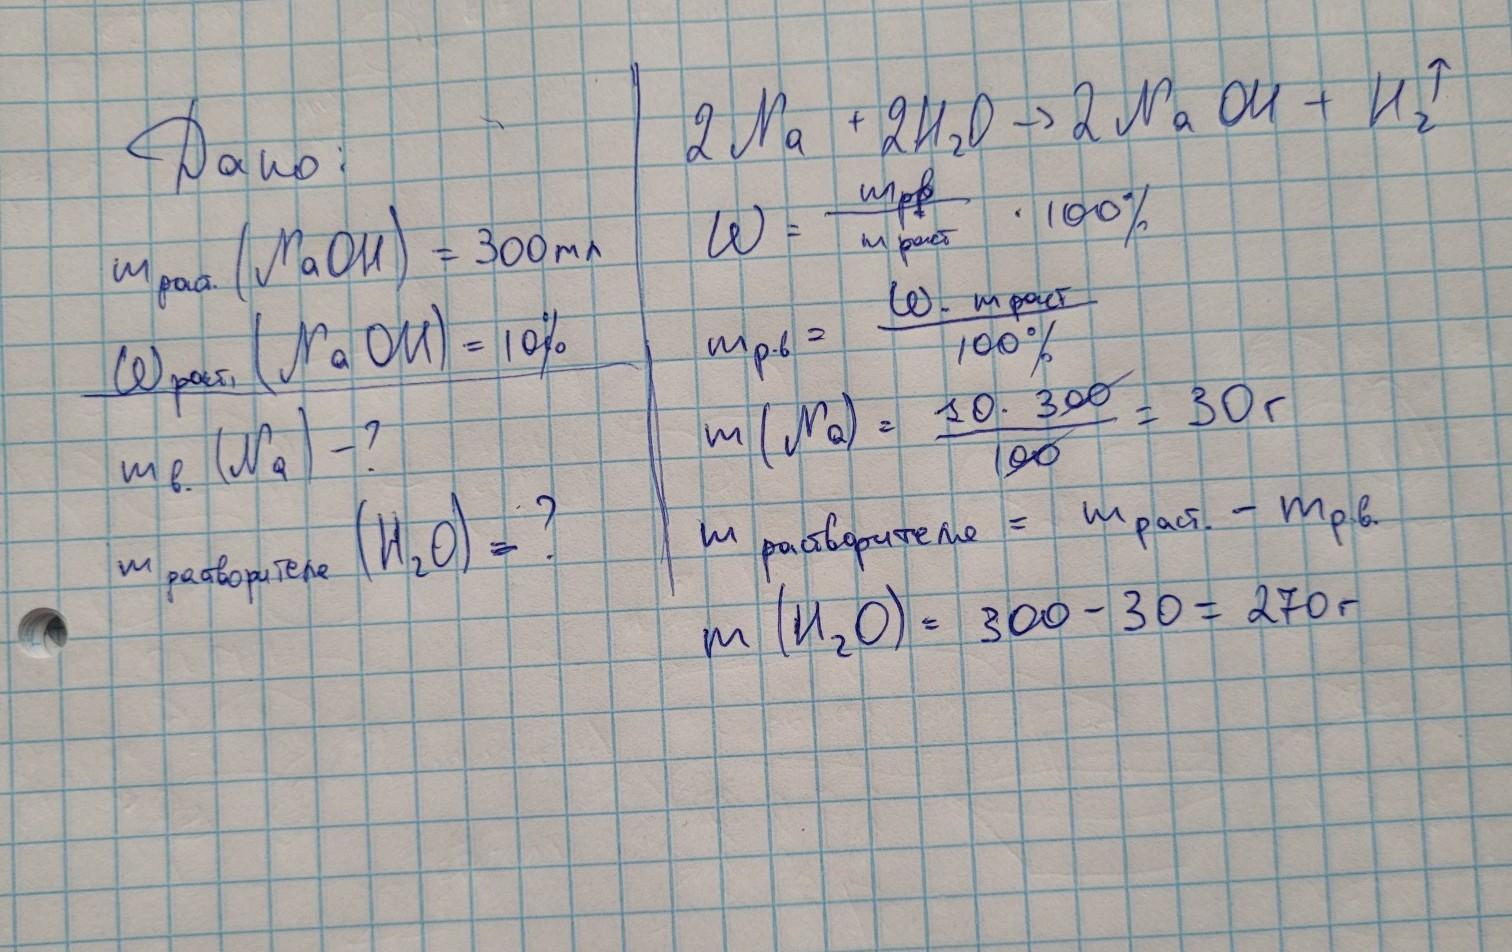 Дано:
m раст. (NaOH) = 300 мл
ω раст. (NaOH) = 10%
m в. (Na) - ?
m растворителя (H₂O) = ?
2Na + 2H₂O → 2NaOH + H₂↑
ω = m рв / m раст · 100%
m р.в = ω · m раст / 100%
m (Na) = 10 · 300 / 100 = 30 г
m растворителя = m раст. - m р.в.
m (H₂O) = 300 - 30 = 270 г